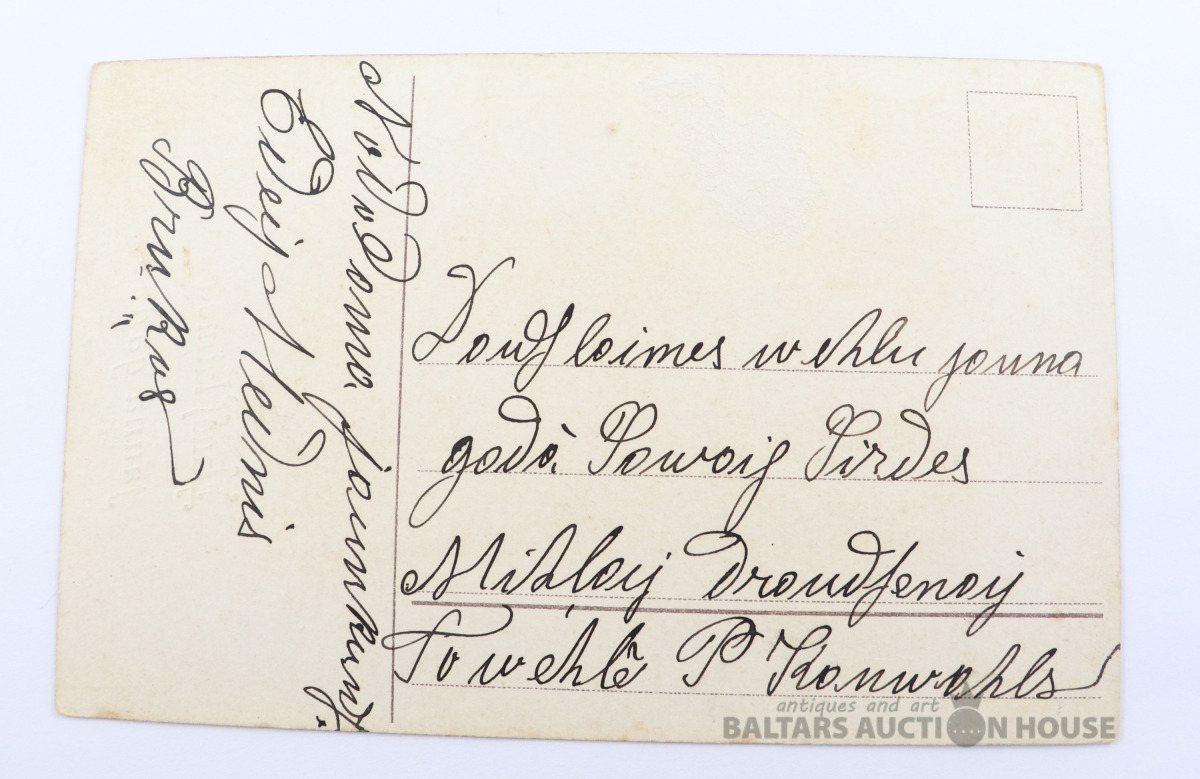 Daudſ laimes wehlu jauna
gadā Sawaiſ Sirdes
Mihlaij draudſenaij
To wehlē P Kanwahls
Nododama jaunkundſ.
Edeij Mednis
Brukās
antiques and art
BALTARS AUCTION HOUSE